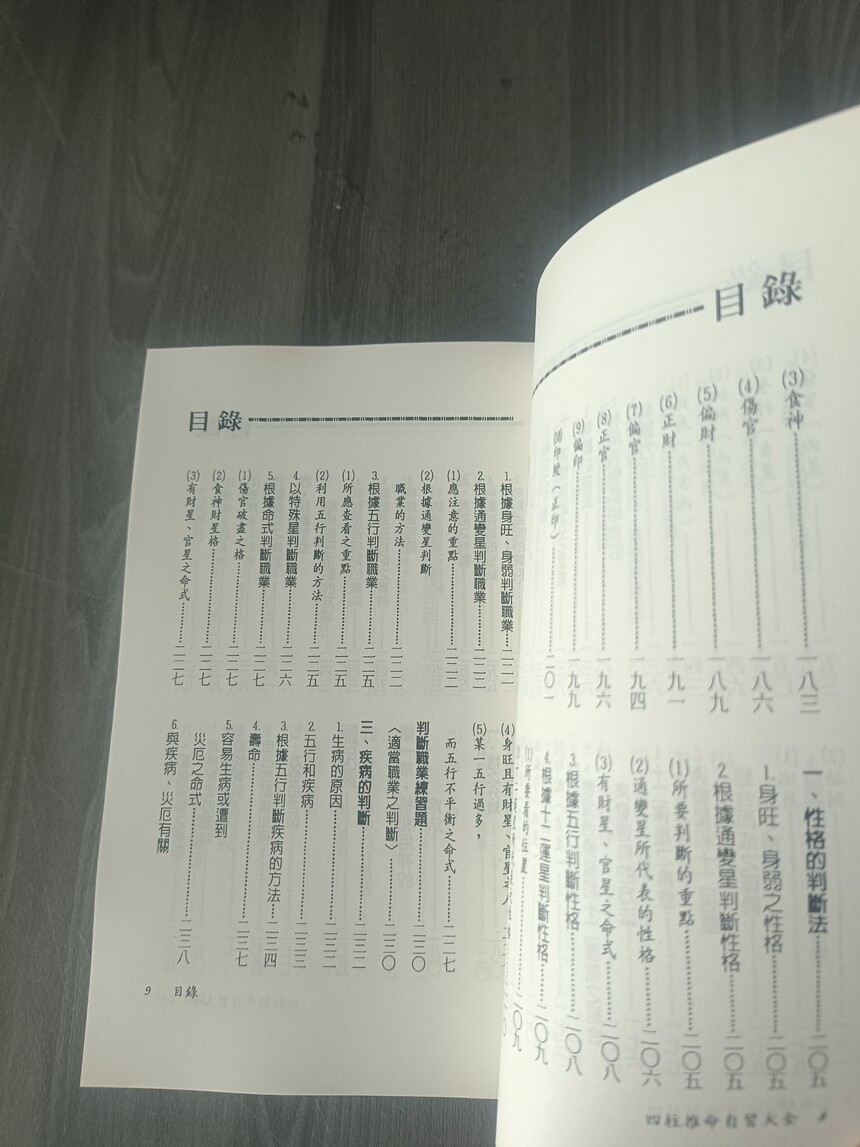 目錄
(3)食神………一八三
(4)傷官………一八六
(5)偏財………一八九
(6)正財………一九一
(7)偏官………一九四
(8)正官………一九六
(9)偏印………一九九
(10)印綬（正印）………二〇一
一、性格的判斷法………二〇五
1.身旺、身弱之性格………二〇五
2.根據通變星判斷性格………二〇五
(1)所要判斷的重點………二〇五
(2)通變星所代表的性格………二〇六
(3)有財星、官星之命式………二〇八
3.根據五行判斷性格………二〇八
4.根據十二運星判斷性格………二〇九
(1)所要看的位置………二〇九
四柱推命自習大全 8
目錄
1.根據身旺、身弱判斷職業………二二一
2.根據通變星判斷職業………二二二
(1)應注意的重點………二二二
(2)根據通變星判斷
職業的方法………二二二
3.根據五行判斷職業………二二五
(1)所應查看之重點………二二五
(2)利用五行判斷的方法………二二五
4.以特殊星判斷職業………二二六
5.根據命式判斷職業………二二七
(1)傷官破盡之格………二二七
(2)食神財星格………二二七
(3)有財星、官星之命式………二二七
(4)身旺且有財星、官星之
(5)某一五行過多，
而五行不平衡之命式………二二七
判斷職業練習題………二三〇
〈適當職業之判斷〉………二三〇
三、疾病的判斷………二三二
1.生病的原因………二三二
2.五行和疾病………二三三
3.根據五行判斷疾病的方法………二三四
4.壽命………二三七
5.容易生病或遭到
災厄之命式………二三八
6.與疾病、災厄有關
9 目錄